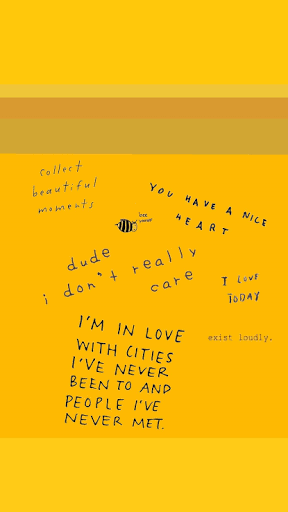 collect
beautiful
moments
YOU HAVE A NICE
HEART
bee
yourself
dude
i don't really
care
I LOVE
TODAY
exist loudly.
I'M IN LOVE
WITH CITIES
I'VE NEVER
BEEN TO AND
PEOPLE I'VE
NEVER MET.